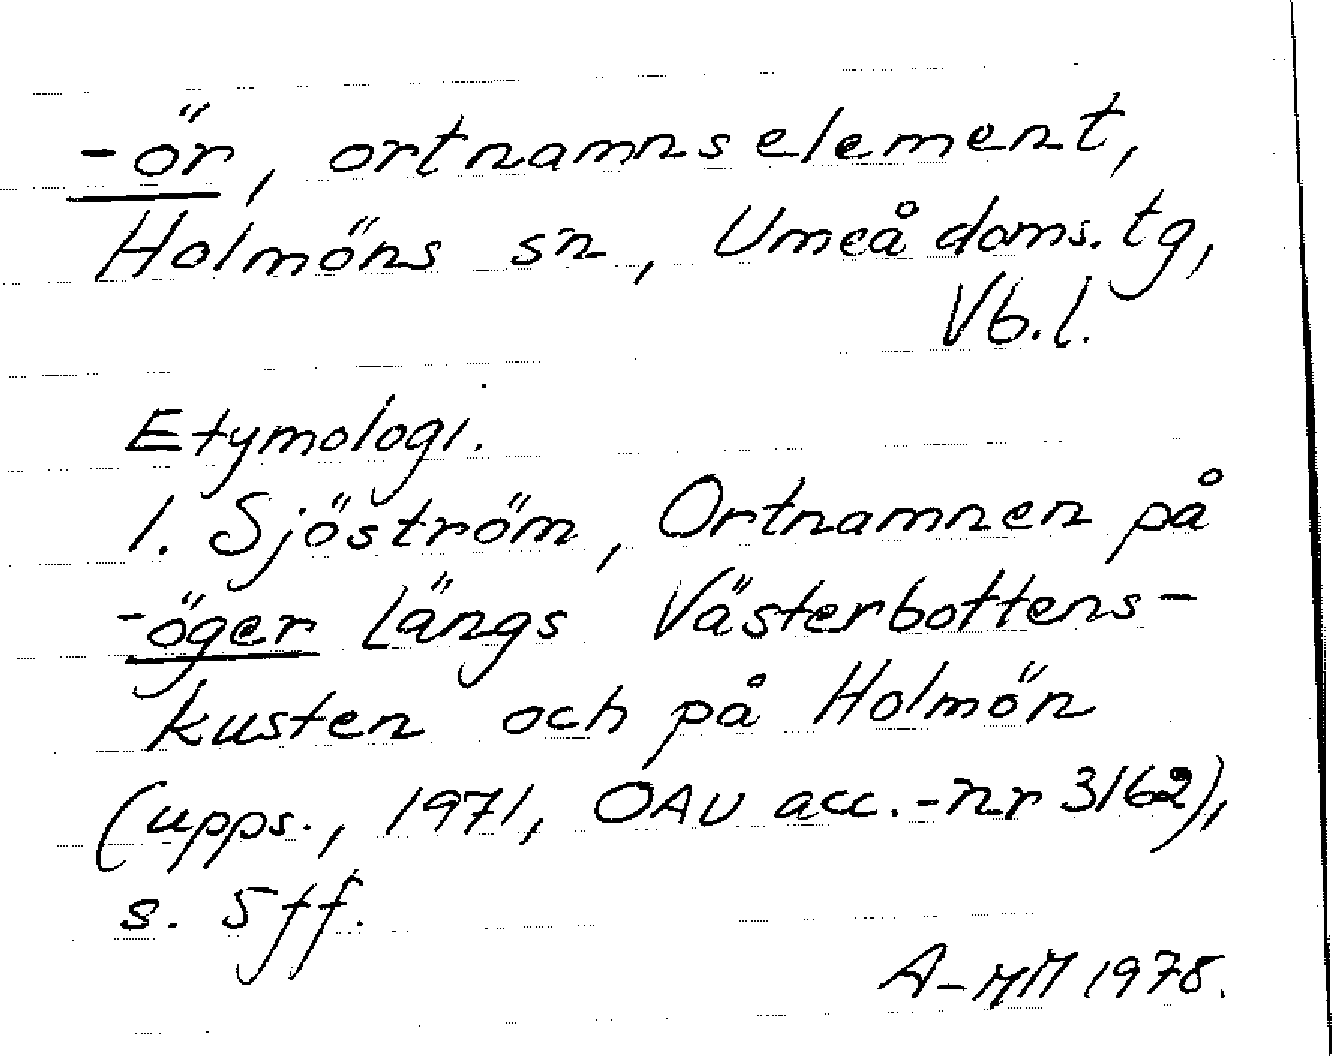 -ör, ortnamnselement,
Holmöns sn, Umeå doms. tg,
Vb.l.
Etymologi.
1. Sjöström, Ortnamnen på
-öger längs Västerbottens-
kusten och på Holmön
(upps., 1971, OAU acc.-nr 3162),
s. 5 ff.
A-MM 1978.